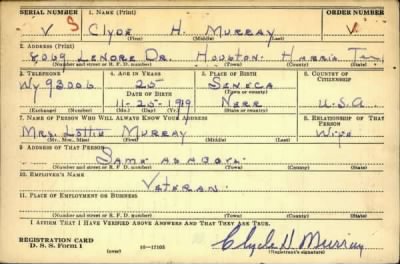 1. NAME (Print) ORDER NUMBER
V S CLYDE H. MURRAY V
(First) (Middle) (Last)
2. ADDRESS (Print)
8069 LENORE DR. HOUSTON HARRIS TEX
(Number and street or R. F. D. number) (Town) (County) (State)
3. TELEPHONE 4. AGE IN YEARS 5. PLACE OF BIRTH 6. COUNTRY OF CITIZENSHIP
WY 93006 25 SENECA
DATE OF BIRTH (Town or county)
11-25-1919 NEBR U.S.A
(Exchange) (Number) (Mo.) (Day) (Yr.) (State or country)
7. NAME OF PERSON WHO WILL ALWAYS KNOW YOUR ADDRESS 8. RELATIONSHIP OF THAT PERSON
MRS. LOTTIE MURRAY WIFE
(Mr., Mrs., Miss) (First) (Middle) (Last)
9. ADDRESS OF THAT PERSON
SAME AS ABOVE
(Number and street or R. F. D. number) (Town) (County) (State)
10. EMPLOYER'S NAME
VETERAN
11. PLACE OF EMPLOYMENT OR BUSINESS
(Number and street or R. F. D. number) (Town) (County) (State)
I AFFIRM THAT I HAVE VERIFIED ABOVE ANSWERS AND THAT THEY ARE TRUE.
REGISTRATION CARD
D. S. S. Form 1 (over) 16—17105
Clyde H. Murray
(Registrant's signature)